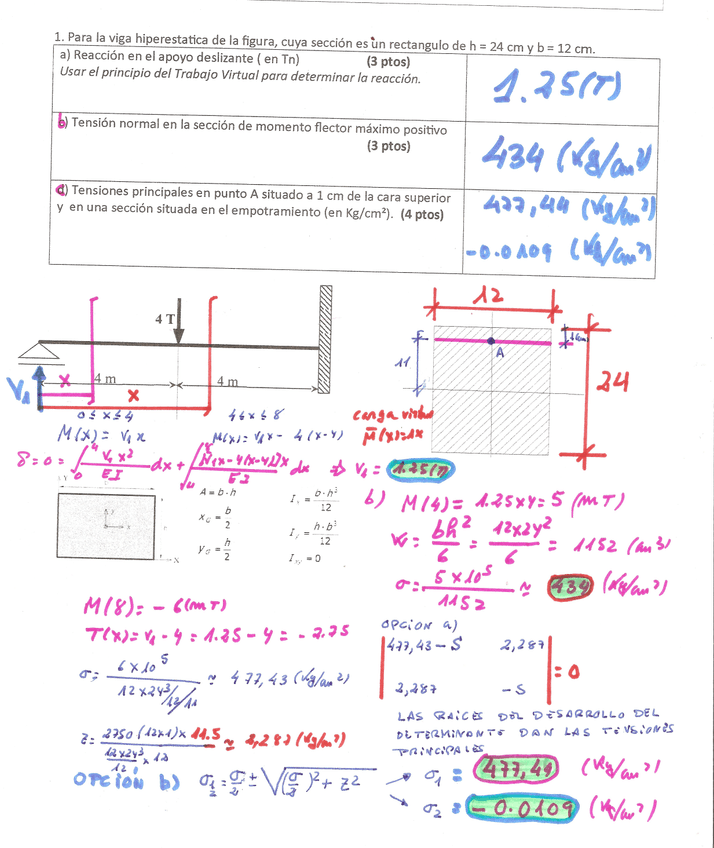 1. Para la viga hiperestatica de la figura, cuya sección es un rectangulo de h = 24 cm y b = 12 cm.
a) Reacción en el apoyo deslizante ( en Tn) (3 ptos)
Usar el principio del Trabajo Virtual para determinar la reacción.
1.25(T)
b) Tensión normal en la sección de momento flector máximo positivo
(3 ptos)
434 (Kg/cm²)
d) Tensiones principales en punto A situado a 1 cm de la cara superior
y en una sección situada en el empotramiento (en Kg/cm²). (4 ptos)
477,44 (Kg/cm²)
-0.0109 (Kg/cm²)
12
4 T
A
11
24
V₁
x
4 m
x
4 m
0 ≤ x ≤ 4
4 ≤ x ≤ 8
carga virtual
M(x) = V₁x
M(x) = V₁x - 4(x-4)
M̄(x)=1x
δ=0= ∫₀⁴ V₁x²/EI dx + ∫₄⁸ [V₁x-4(x-4)]x/EI dx ⇒ V₁ = 1.25(T)
A = b·h
I = b·h³/12
x_G = b/2
y_G = h/2
I = h·b³/12
I = 0
b) M(4) = 1.25x4 = 5 (mT)
W = bh²/6 = 12x24²/6 = 1152 (cm³)
σ = 5x10⁵/1152 ≃ 434 (Kg/cm²)
M(8) = - 6(mT)
T(x) = V₁ - 4 = 1.25 - 4 = - 2.75
σ = 6x10⁵/12x24³/12/11 ≃ 477,43 (Kg/cm²)
z = 2750(12x1)x11.5/12x24³/12 x12 ≃ 2,287 (Kg/cm²)
OPCION a)
477,43 - S 2,287
2,287 -S
= 0
LAS RAICES DEL DESARROLLO DEL
DETERMINANTE DAN LAS TENSIONES
PRINCIPALES
OPCIÓN b) σ₁/₂ = σ/2 ± √(σ/2)² + z²
σ₁ = 477,44 (Kg/cm²)
σ₂ = -0.0109 (Kg/cm²)